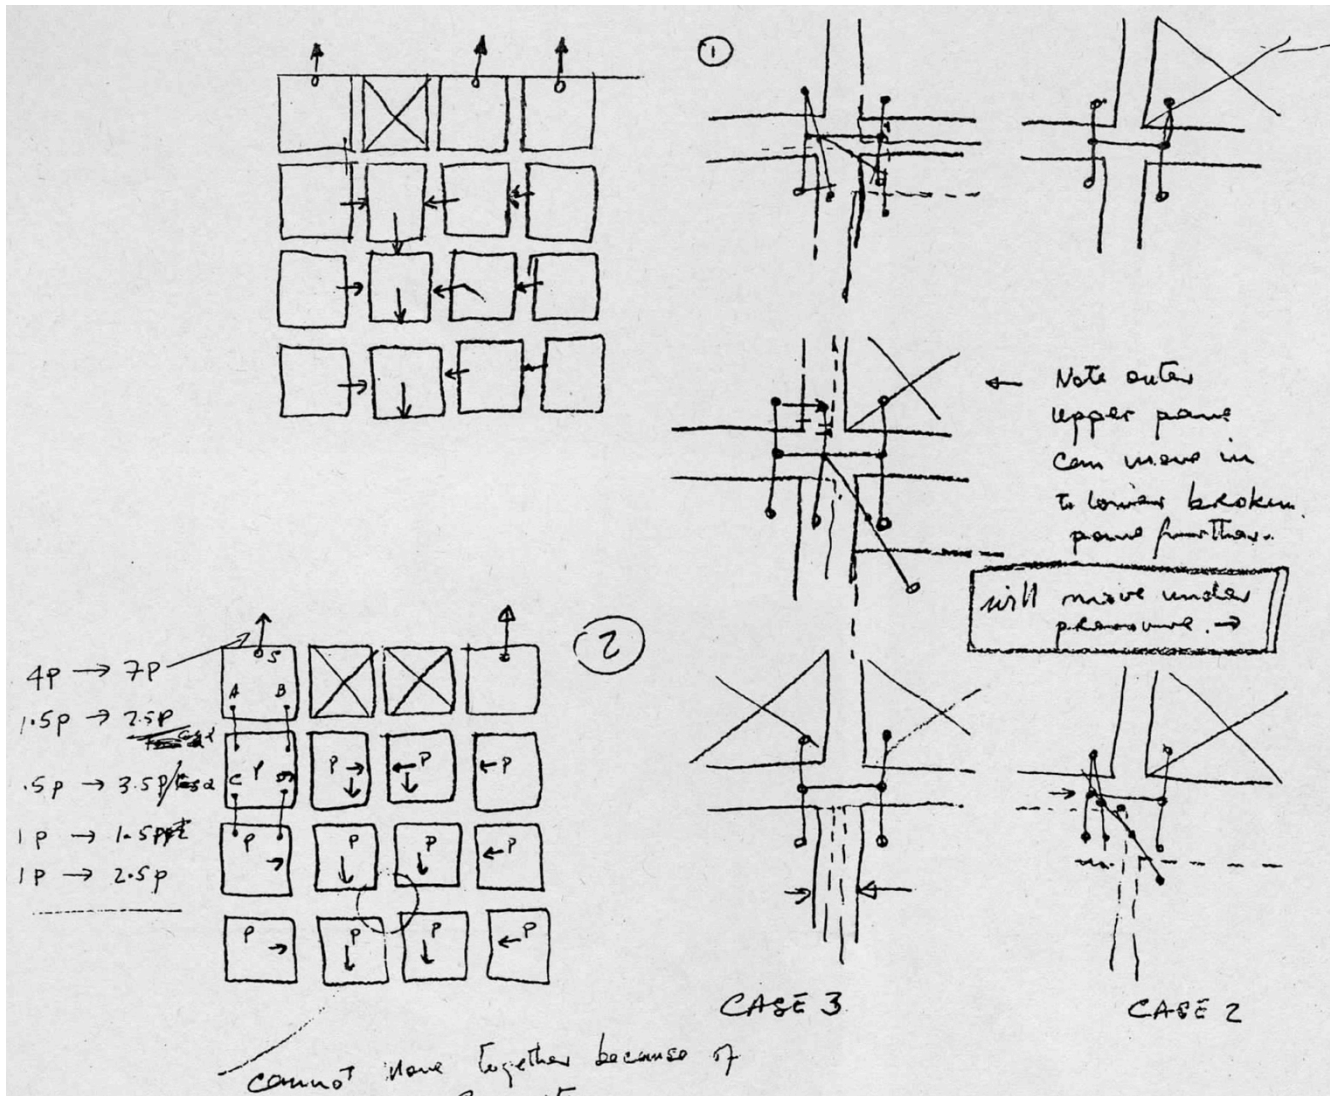 ①
← Note outer
upper pane
can move in
to lower broken
pane further.
will move under
pressure. →
②
4P → 7P
1.5P → 2.5P
.5P → 3.5P/
1P → 1.5P
1P → 2.5P
S
A B
C D
P P P P
P P P P
P P P P
CASE 3
CASE 2
cannot move together because of